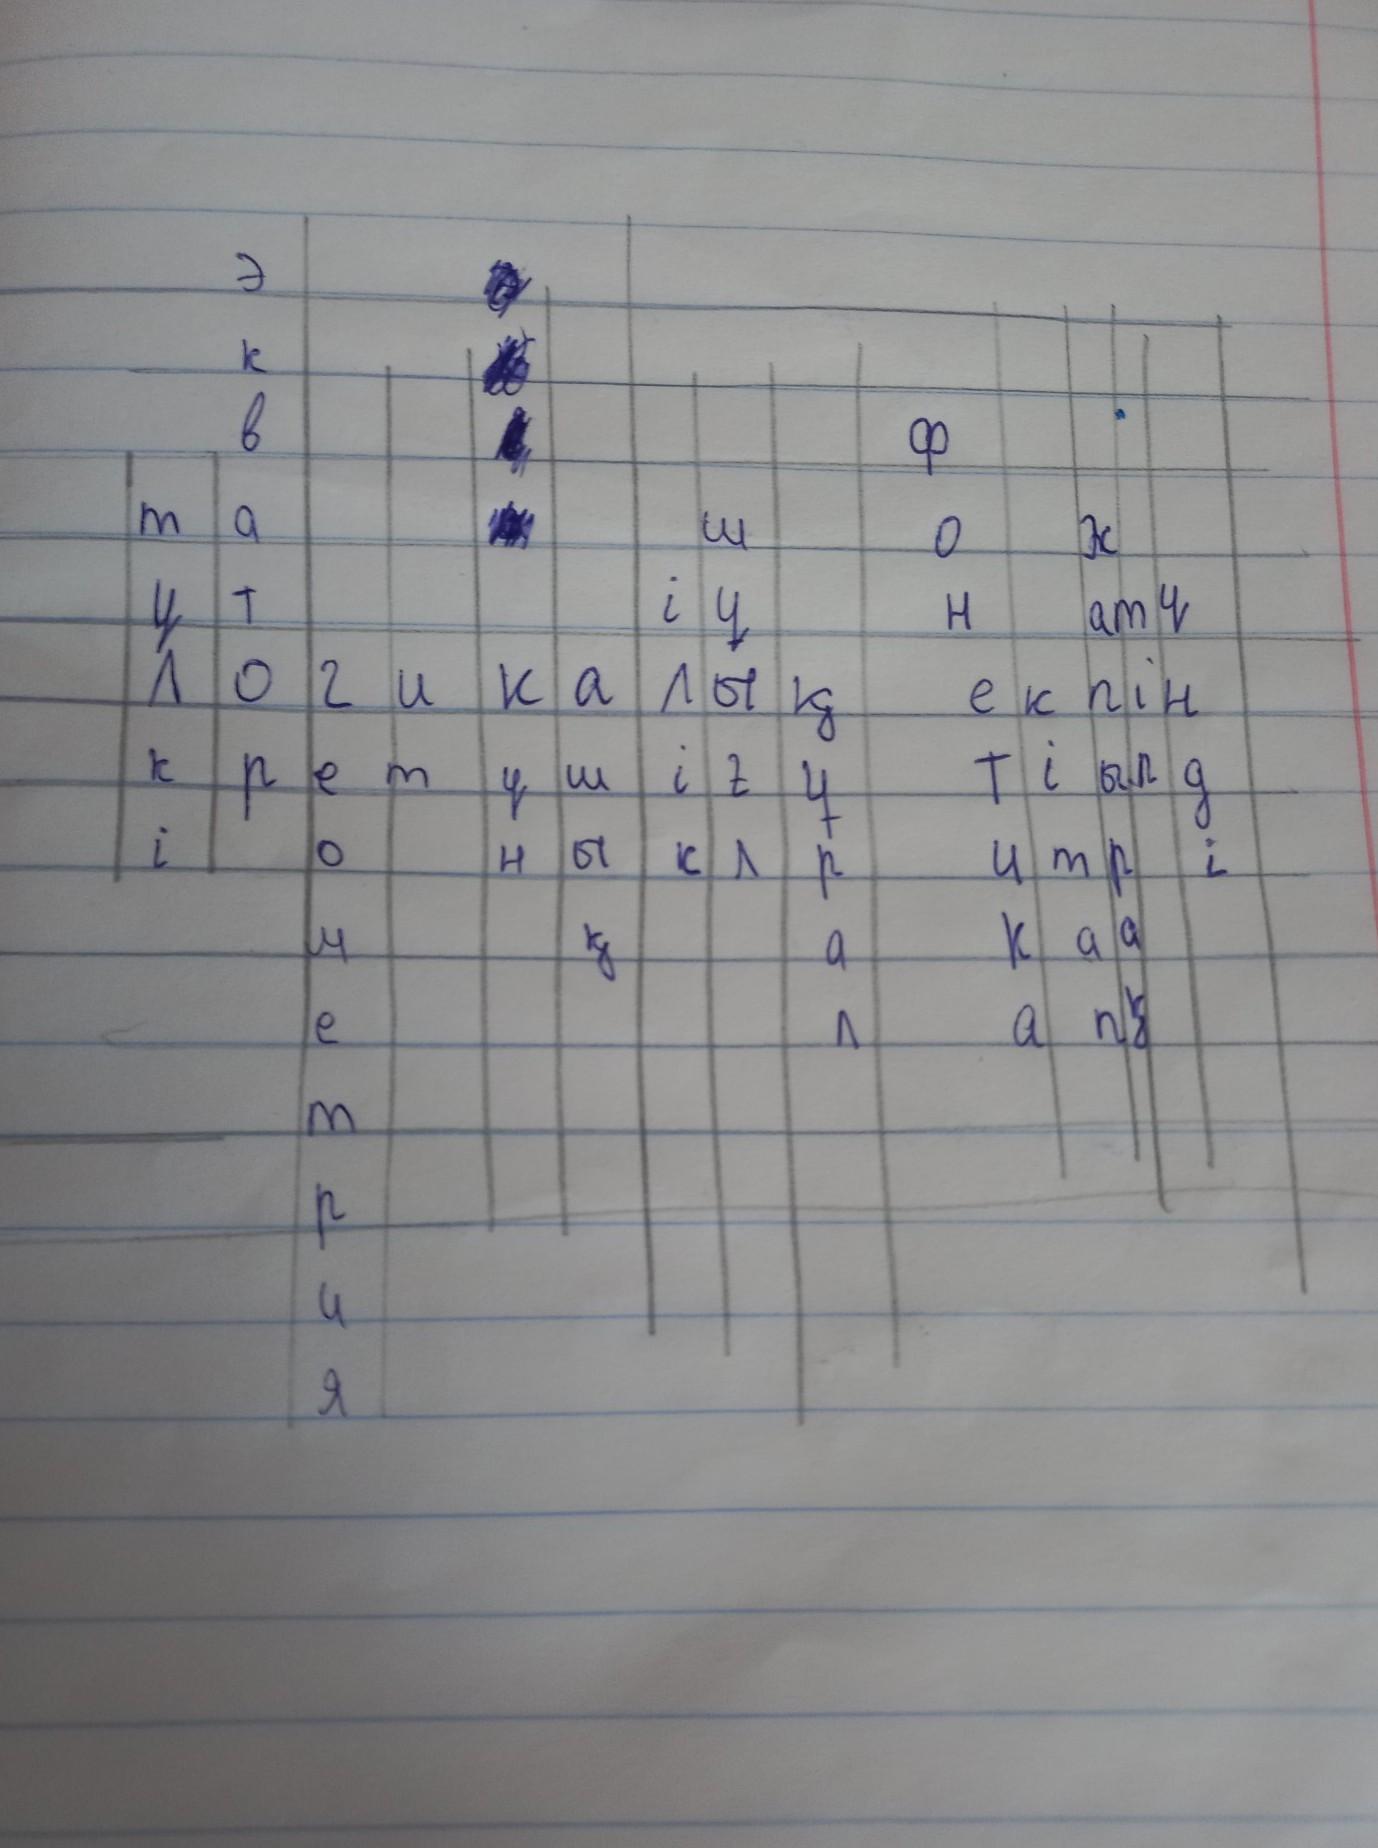 э
к
в ф
т а ш о ж
ү т і ұ н а т ч
л о г и к а л ы қ е к п і н
к р е т ұ ш і з ұ т і ы л д
і о н ы к л р и т р і
м қ а к а а
е л а п қ
т
р
и
я